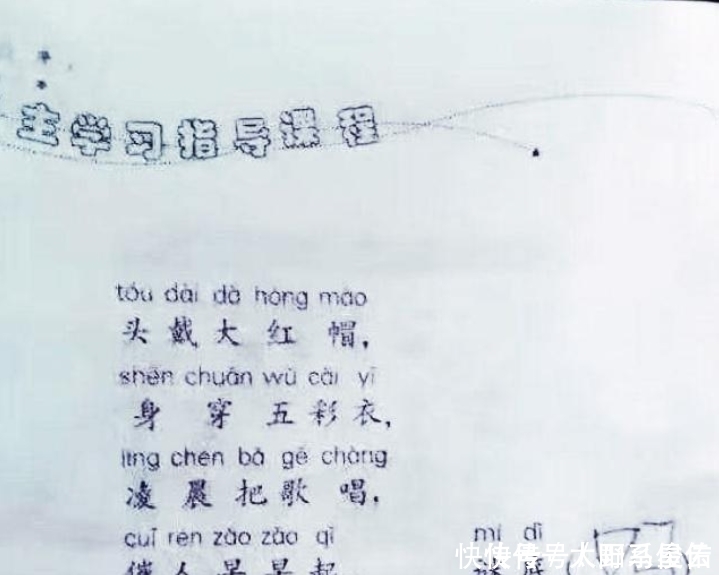 主学习指导课程
tóu dài dà hóng mào
头戴大红帽，
shēn chuān wǔ cǎi yī
身穿五彩衣，
líng chén bǎ gē chàng
凌晨把歌唱，
cuī rén zǎo zǎo qǐ mí dǐ
催人早早起 谜底